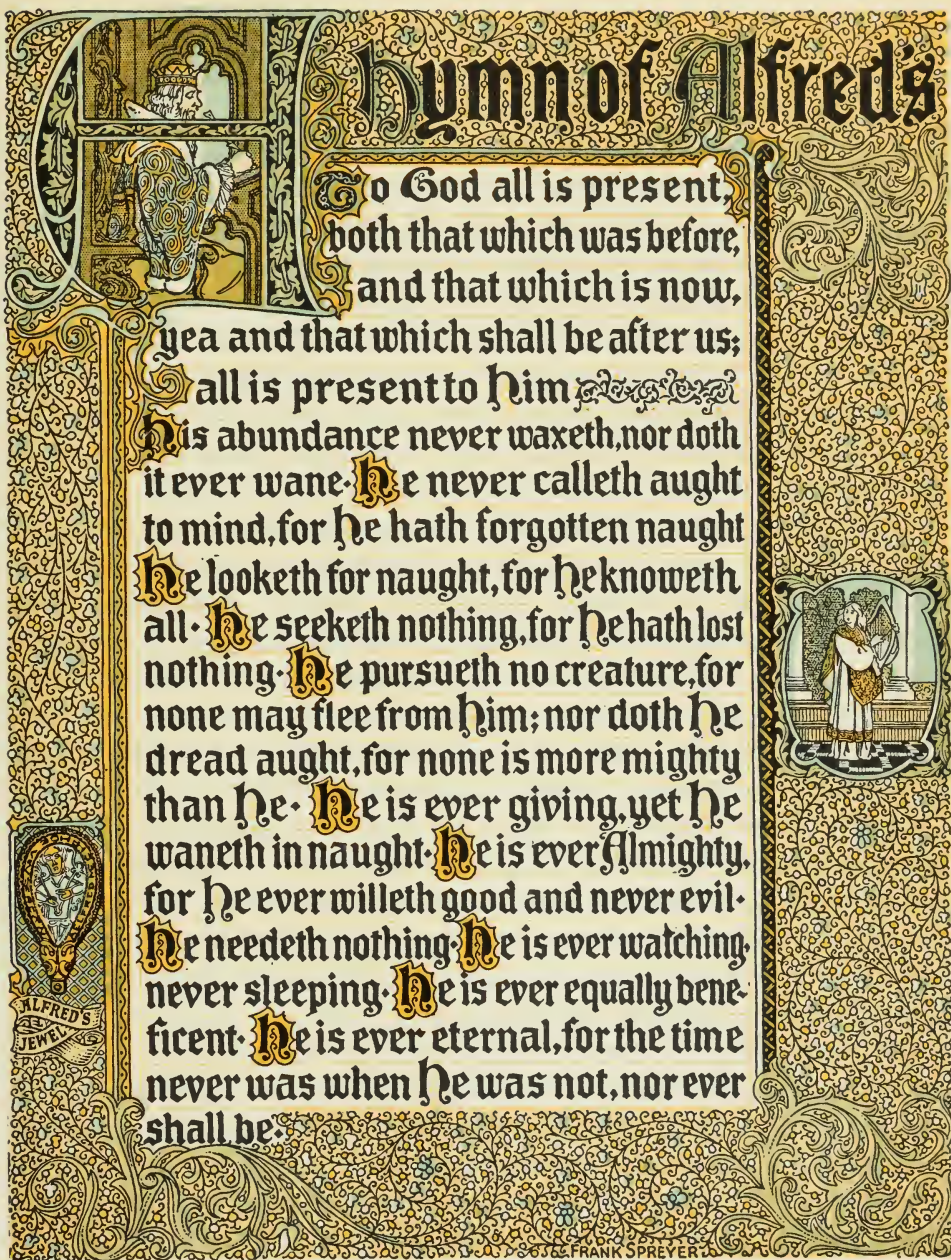 A hymn of Alfred's
To God all is present,
both that which was before,
and that which is now,
yea and that which shall be after us;
all is present to him
his abundance never waxeth, nor doth
it ever wane· he never calleth aught
to mind, for he hath forgotten naught
he looketh for naught, for he knoweth
all· he seeketh nothing, for he hath lost
nothing· he pursueth no creature, for
none may flee from him; nor doth he
dread aught, for none is more mighty
than he· he is ever giving, yet he
waneth in naught· he is ever Almighty,
for he ever willeth good and never evil·
he needeth nothing· he is ever watching·
never sleeping· he is ever equally bene-
ficent· he is ever eternal, for the time
never was when he was not, nor ever
shall be·
ALFRED'S
JEWEL
FRANK SPREYER